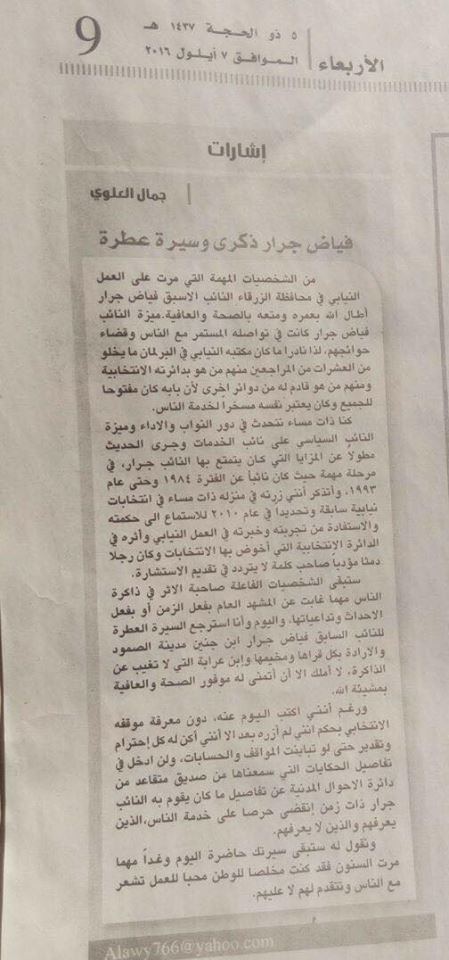 9
٥ ذو الحجة ١٤٣٧ هـ
الأربعاء
الموافق ٧ أيلول ٢٠١٦
إشارات
جمال العلوي
فياض جرار ذكرى وسيرة عطرة
من الشخصيات المهمة التي مرت على العمل
النيابي في محافظة الزرقاء النائب الاسبق فياض جرار
أطال الله بعمره ومتعه بالصحة والعافية.ميزة النائب
فياض جرار كانت في تواصله المستمر مع الناس وقضاء
حوائجهم، لذا نادرا ما كان مكتبه النيابي في البرلمان ما يخلو
من العشرات من المراجعين منهم من هو بدائرته الانتخابية
ومنهم من هو قادم له من دوائر اخرى لأن بابه كان مفتوحا
للجميع وكان يعتبر نفسه مسخرا لخدمة الناس.
كنا ذات مساء نتحدث في دور النواب والاداء وميزة
النائب السياسي على نائب الخدمات وجرى الحديث
مطولاً عن المزايا التي كان يتمتع بها النائب جرار، في
مرحلة مهمة حيث كان نائباً عن الفترة ١٩٨٤ وحتى عام
١٩٩٣، وأتذكر أنني زرته في منزله ذات مساء في انتخابات
نيابية سابقة وتحديدا في عام ٢٠١٠ للاستماع الى حكمته
والاستفادة من تجربته وخبرته في العمل النيابي وأثره في
الدائرة الانتخابية التي أخوض بها الانتخابات وكان رجلا
دمثا مؤدبا صاحب كلمة لا يتردد في تقديم الاستشارة.
ستبقى الشخصيات الفاعلة صاحبة الاثر في ذاكرة
الناس مهما غابت عن المشهد العام بفعل الزمن أو بفعل
الاحداث وتداعياتها. واليوم وأنا استرجع السيرة العطرة
للنائب السابق فياض جرار ابن جنين مدينة الصمود
والارادة بكل قراها ومخيمها وإبن عرابة التي لا تغيب عن
الذاكرة، لا أملك الا أن أتمنى له موفور الصحة والعافية
بمشيئة الله.
ورغم أنني اكتب اليوم عنه، دون معرفة موقفه
الانتخابي بحكم انني لم أزره بعد الا أنني أكن له كل إحترام
وتقدير حتى لو تباينت المواقف والحسابات، ولن ادخل في
تفاصيل الحكايات التي سمعناها من صديق متقاعد من
دائرة الاحوال المدنية عن تفاصيل ما كان يقوم به النائب
جرار ذات زمن إنقضى حرصا على خدمة الناس،الذين
يعرفهم والذين لا يعرفهم.
ونقول له ستبقى سيرتك حاضرة اليوم وغداً مهما
مرت السنون فقد كنت مخلصا للوطن محبا للعمل تشعر
مع الناس وتتقدم لهم لا عليهم.
Alawy766@yahoo.com